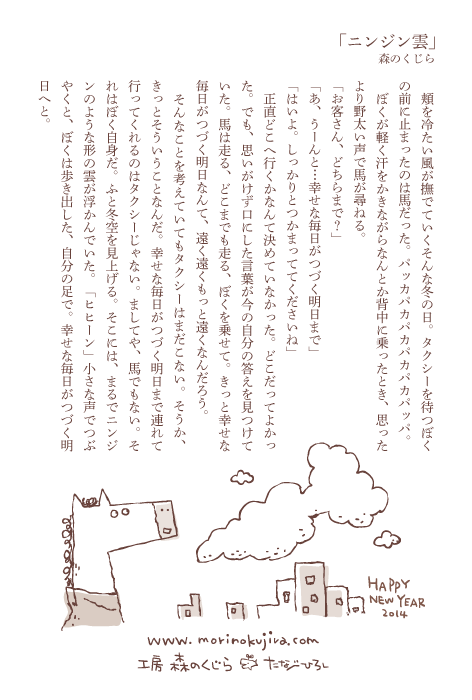 「ニンジン雲」
森のくじら
　頬を冷たい風が撫でていくそんな冬の日。タクシーを待つぼく
の前に止まったのは馬だった。パッカパカパカパカパカパッパ。
　ぼくが軽く汗をかきながらなんとか背中に乗ったとき、思った
より野太い声で馬が尋ねる。
「お客さん、どちらまで？」
「あ、うーんと…幸せな毎日がつづく明日まで」
「はいよ。しっかりとつかまっててくださいね」
　正直どこへ行くかなんて決めていなかった。どこだってよかっ
た。でも、思いがけず口にした言葉が今の自分の答えを見つけて
いた。馬は走る、どこまでも走る、ぼくを乗せて。きっと幸せな
毎日がつづく明日なんて、遠く遠くもっと遠くなんだろう。
　そんなことを考えていてもタクシーはまだこない。そうか、
きっとそういうことなんだ。幸せな毎日がつづく明日まで連れて
行ってくれるのはタクシーじゃない。ましてや、馬でもない。そ
れはぼく自身だ。ふと冬空を見上げる。そこには、まるでニンジ
ンのような形の雲が浮かんでいた。「ヒヒーン」小さな声でつぶ
やくと、ぼくは歩き出した、自分の足で。幸せな毎日がつづく明
日へと。
HAPPY
NEW YEAR
2014
www.morinokujira.com
工房 森のくじら たなじひろし